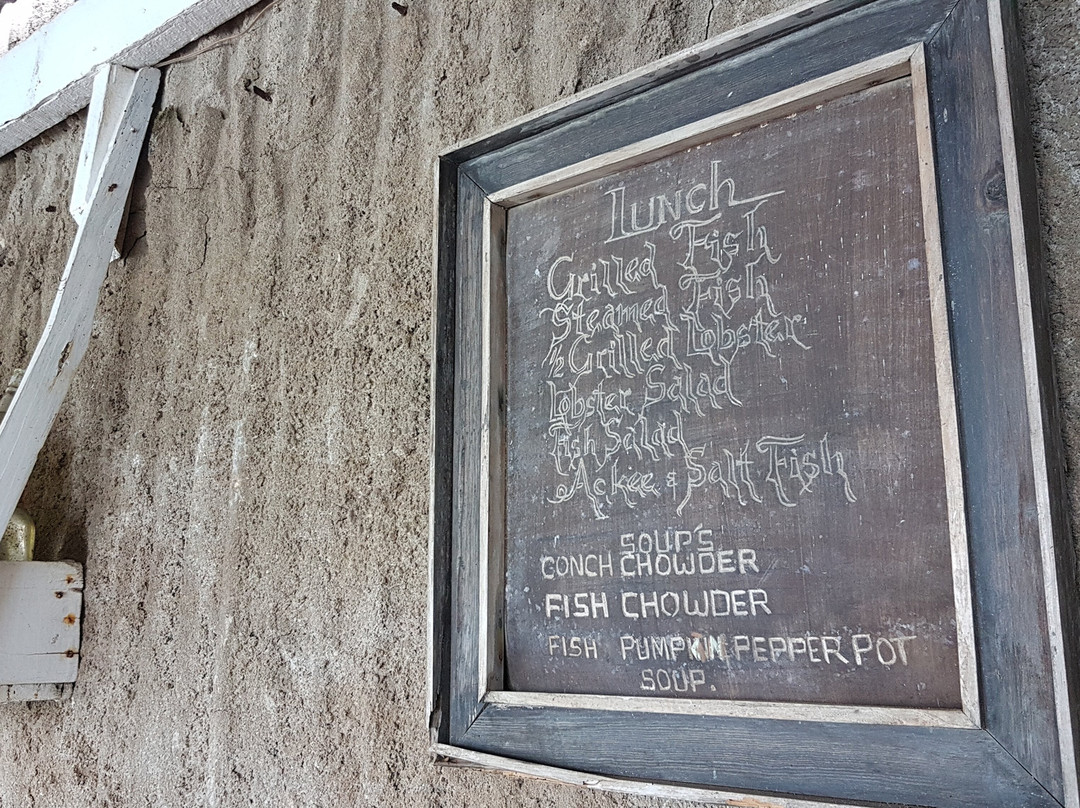 LUNCH
Grilled Fish
Steamed Fish
½ Grilled Lobster
Lobster Salad
Fish Salad
Ackee & Salt Fish
SOUP'S
CONCH CHOWDER
FISH CHOWDER
FISH PUMPKIN PEPPER POT
SOUP.